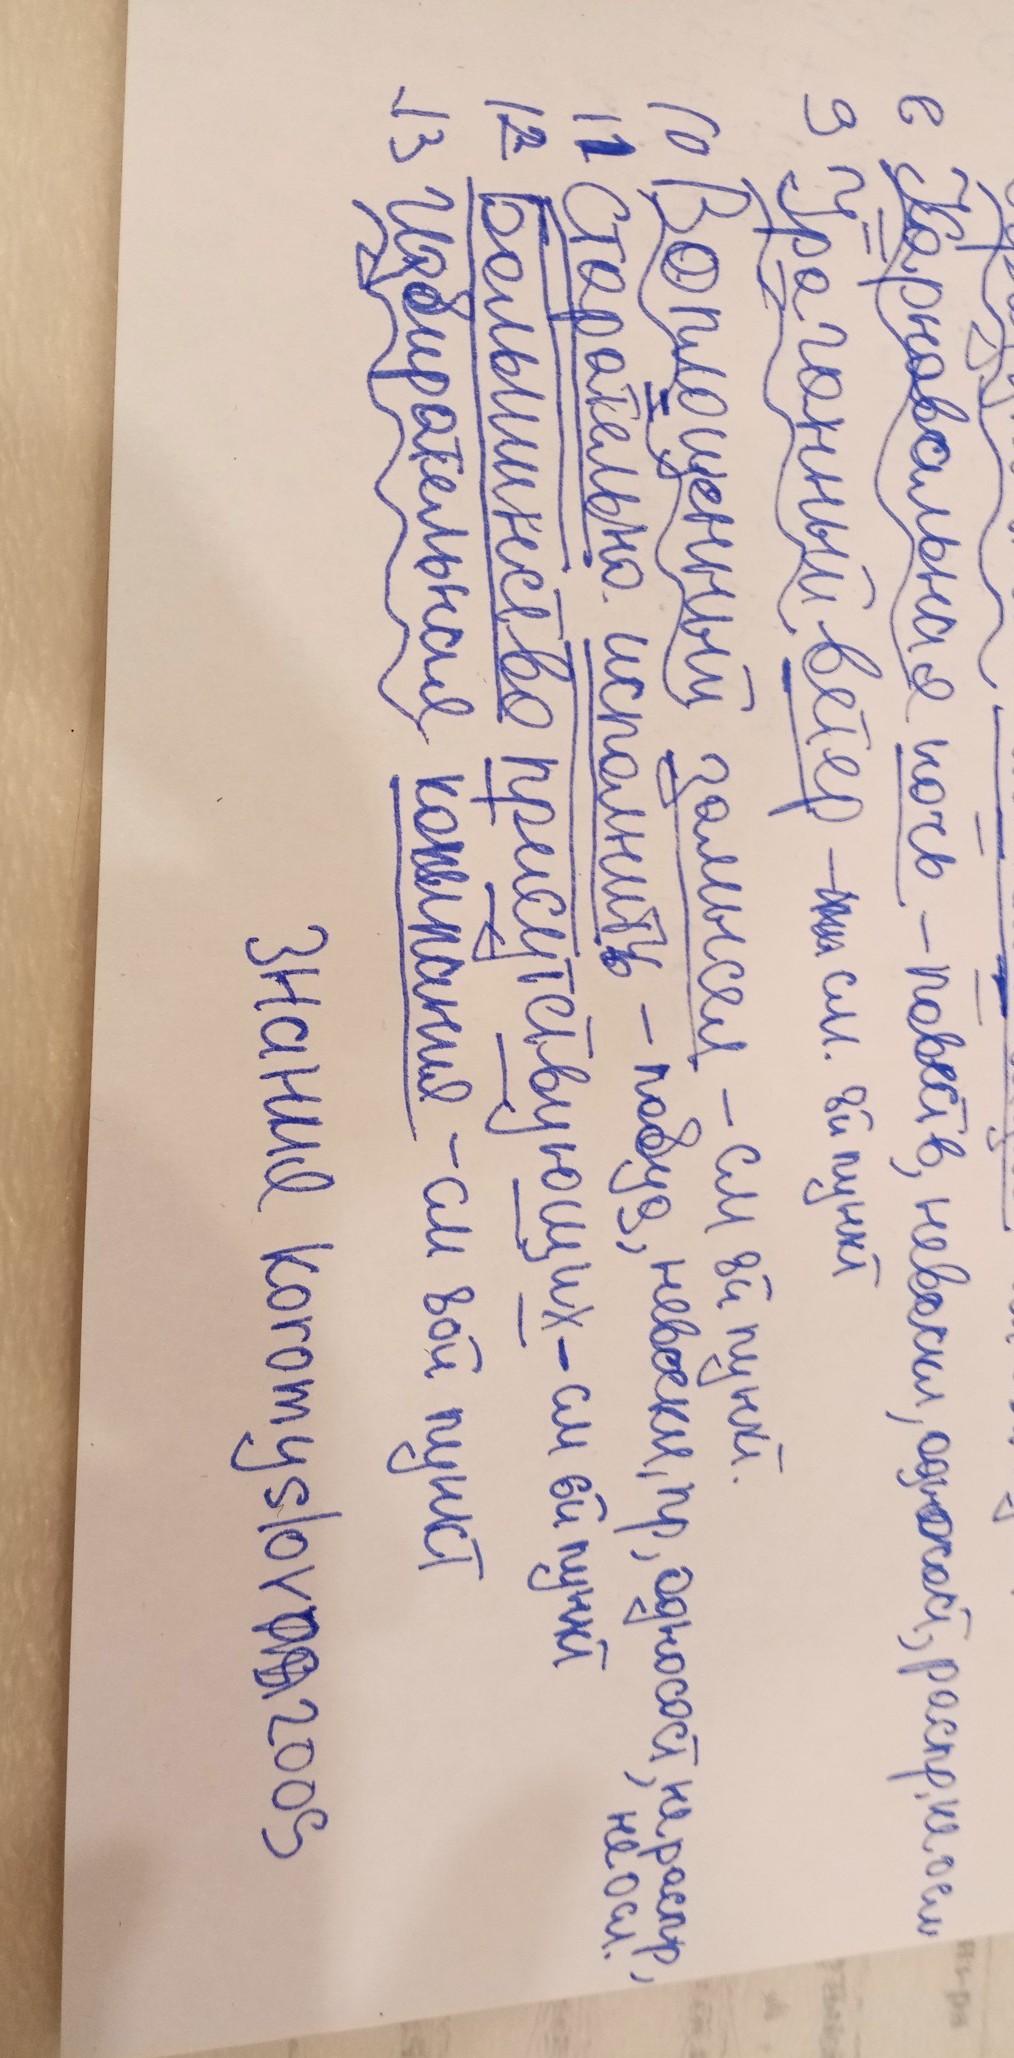 8 Карновальная ночь – повеств, невоскл, односост, распр, не осл
9 Ураганный ветер – см. 8й пункт
10 Воплощенный замысел – см 8й пункт.
11 Старательно исполнить – побуд, невоскл, пр, односост, нераспр,
не осл.
12 Большинство присутствующих – см 6й пункт
13 Избирательная компания – см 8ой пункт
Знания koromyslova 2005